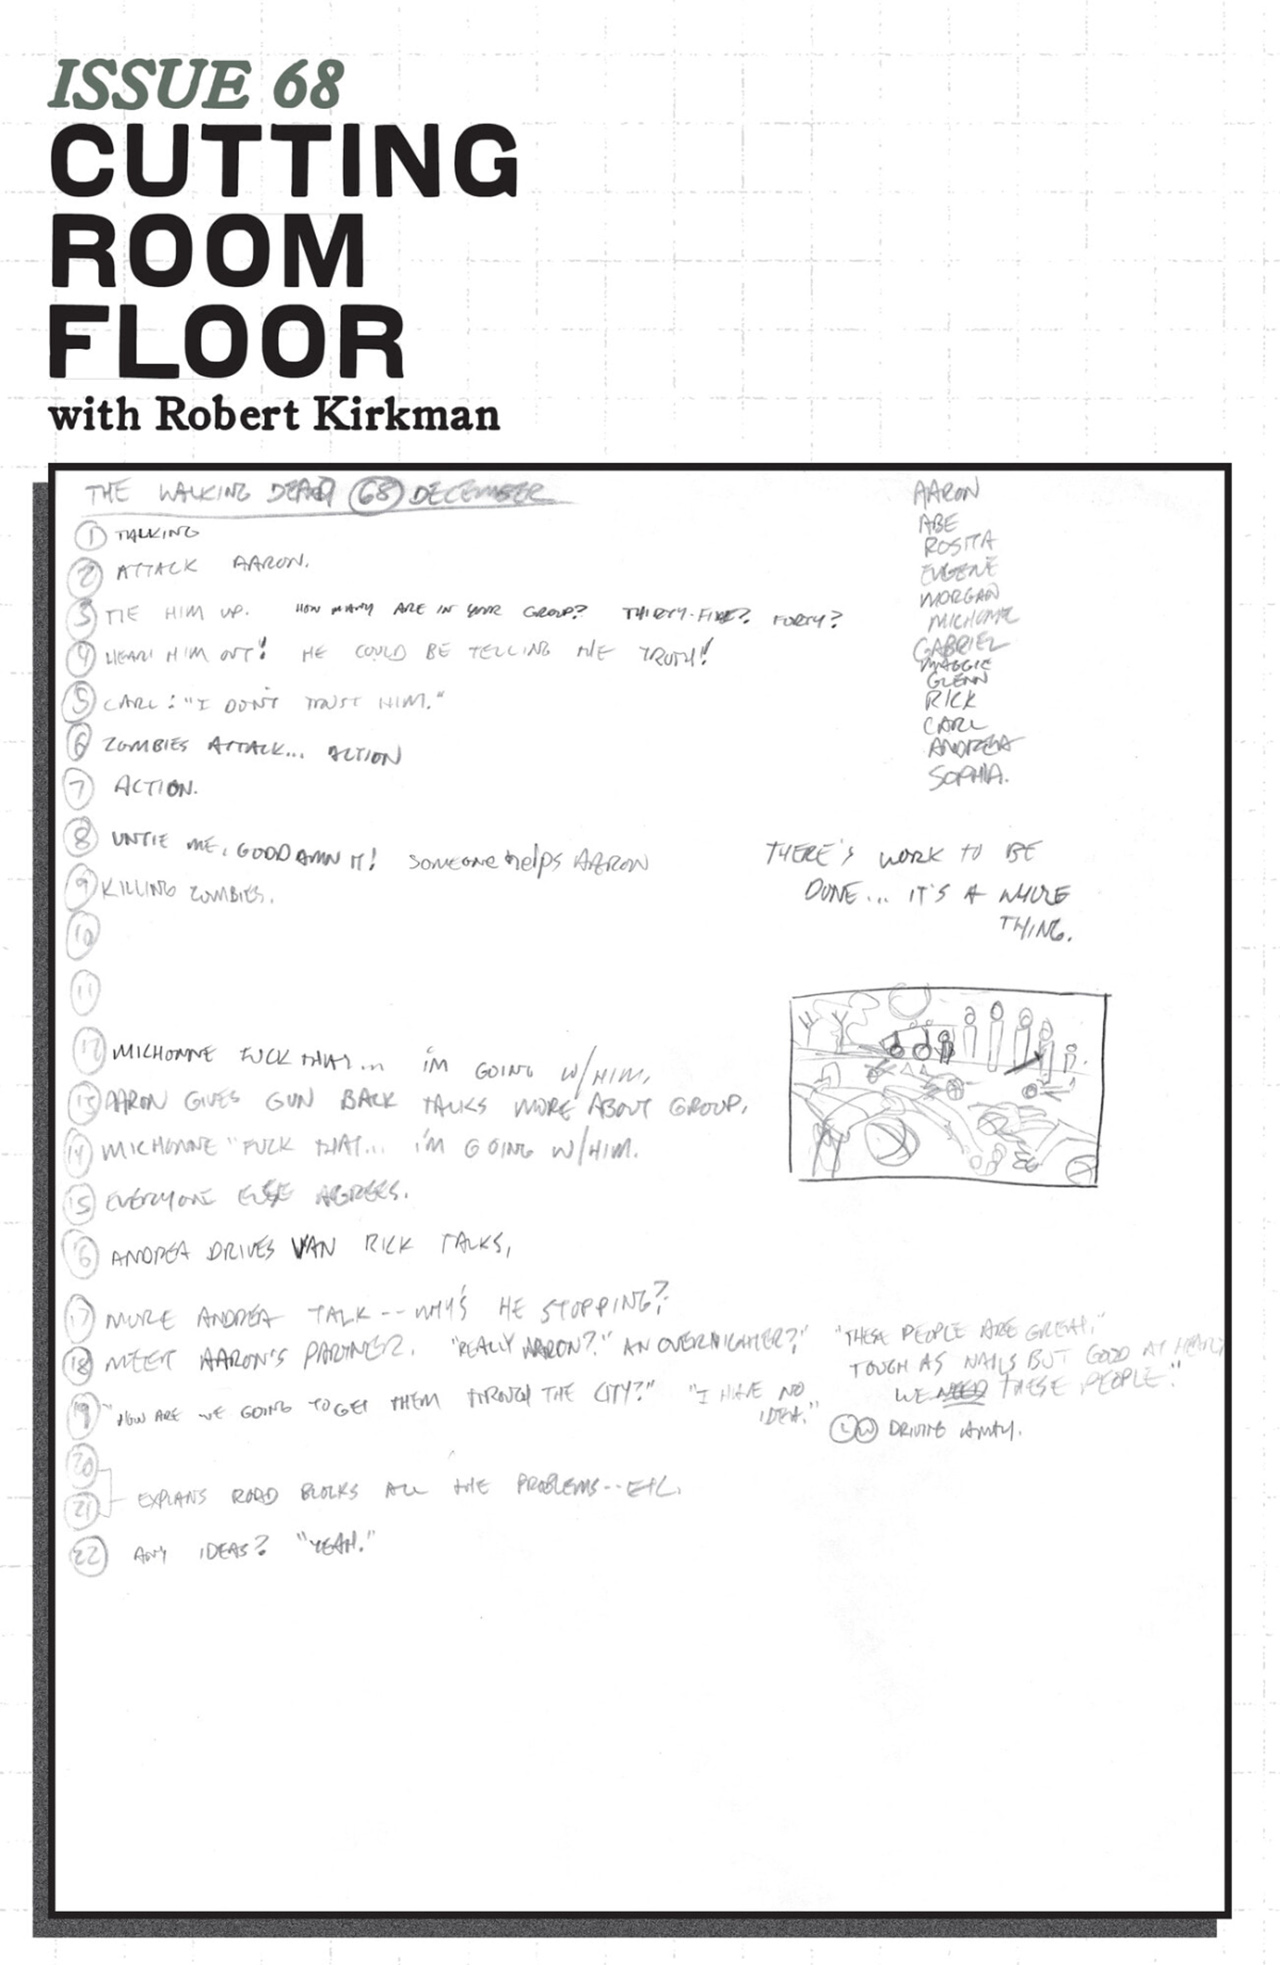 ISSUE 68
CUTTING
ROOM
FLOOR
with Robert Kirkman
THE WALKING DEAD 68 DECEMBER
1 TALKING
2 ATTACK AARON.
3 TIE HIM UP. HOW MANY ARE IN YOUR GROUP? THIRTY-FIVE? FORTY?
4 HEAR HIM OUT! HE COULD BE TELLING THE TRUTH!
5 CARL: "I DON'T TRUST HIM."
6 ZOMBIES ATTACK... ACTION
7 ACTION.
8 UNTIE ME, GODDAMN IT! SOMEONE HELPS AARON
9 KILLING ZOMBIES.
10
11
12 MICHONNE FUCK THAT... I'M GOING W/HIM.
13 AARON GIVES GUN BACK TALKS MORE ABOUT GROUP.
14 MICHONNE "FUCK THAT... I'M GOING W/HIM.
15 EVERYONE ELSE AGREES.
16 ANDREA DRIVES VAN RICK TALKS,
17 MORE ANDREA TALK -- WHY'S HE STOPPING?
18 MEET AARON'S PARTNER. "REALLY AARON?" AN OVERNIGHTER?"
19 "HOW ARE WE GOING TO GET THEM THROUGH THE CITY?" "I HAVE NO
IDEA."
20
21 EXPLANS ROAD BLOCKS ALL THE PROBLEMS--ETC.
22 ANY IDEAS? "YEAH."
AARON
ABE
ROSITA
EUGENE
MORGAN
MICHONNE
GABRIEL
MAGGIE
GLENN
RICK
CARL
ANDREA
SOPHIA.
THERE'S WORK TO BE
DONE... IT'S A WHOLE
THING.
"THESE PEOPLE ARE GREAT."
TOUGH AS NAILS BUT GOOD AT HEART
WE NEED THESE PEOPLE."
DRIVING AWAY.